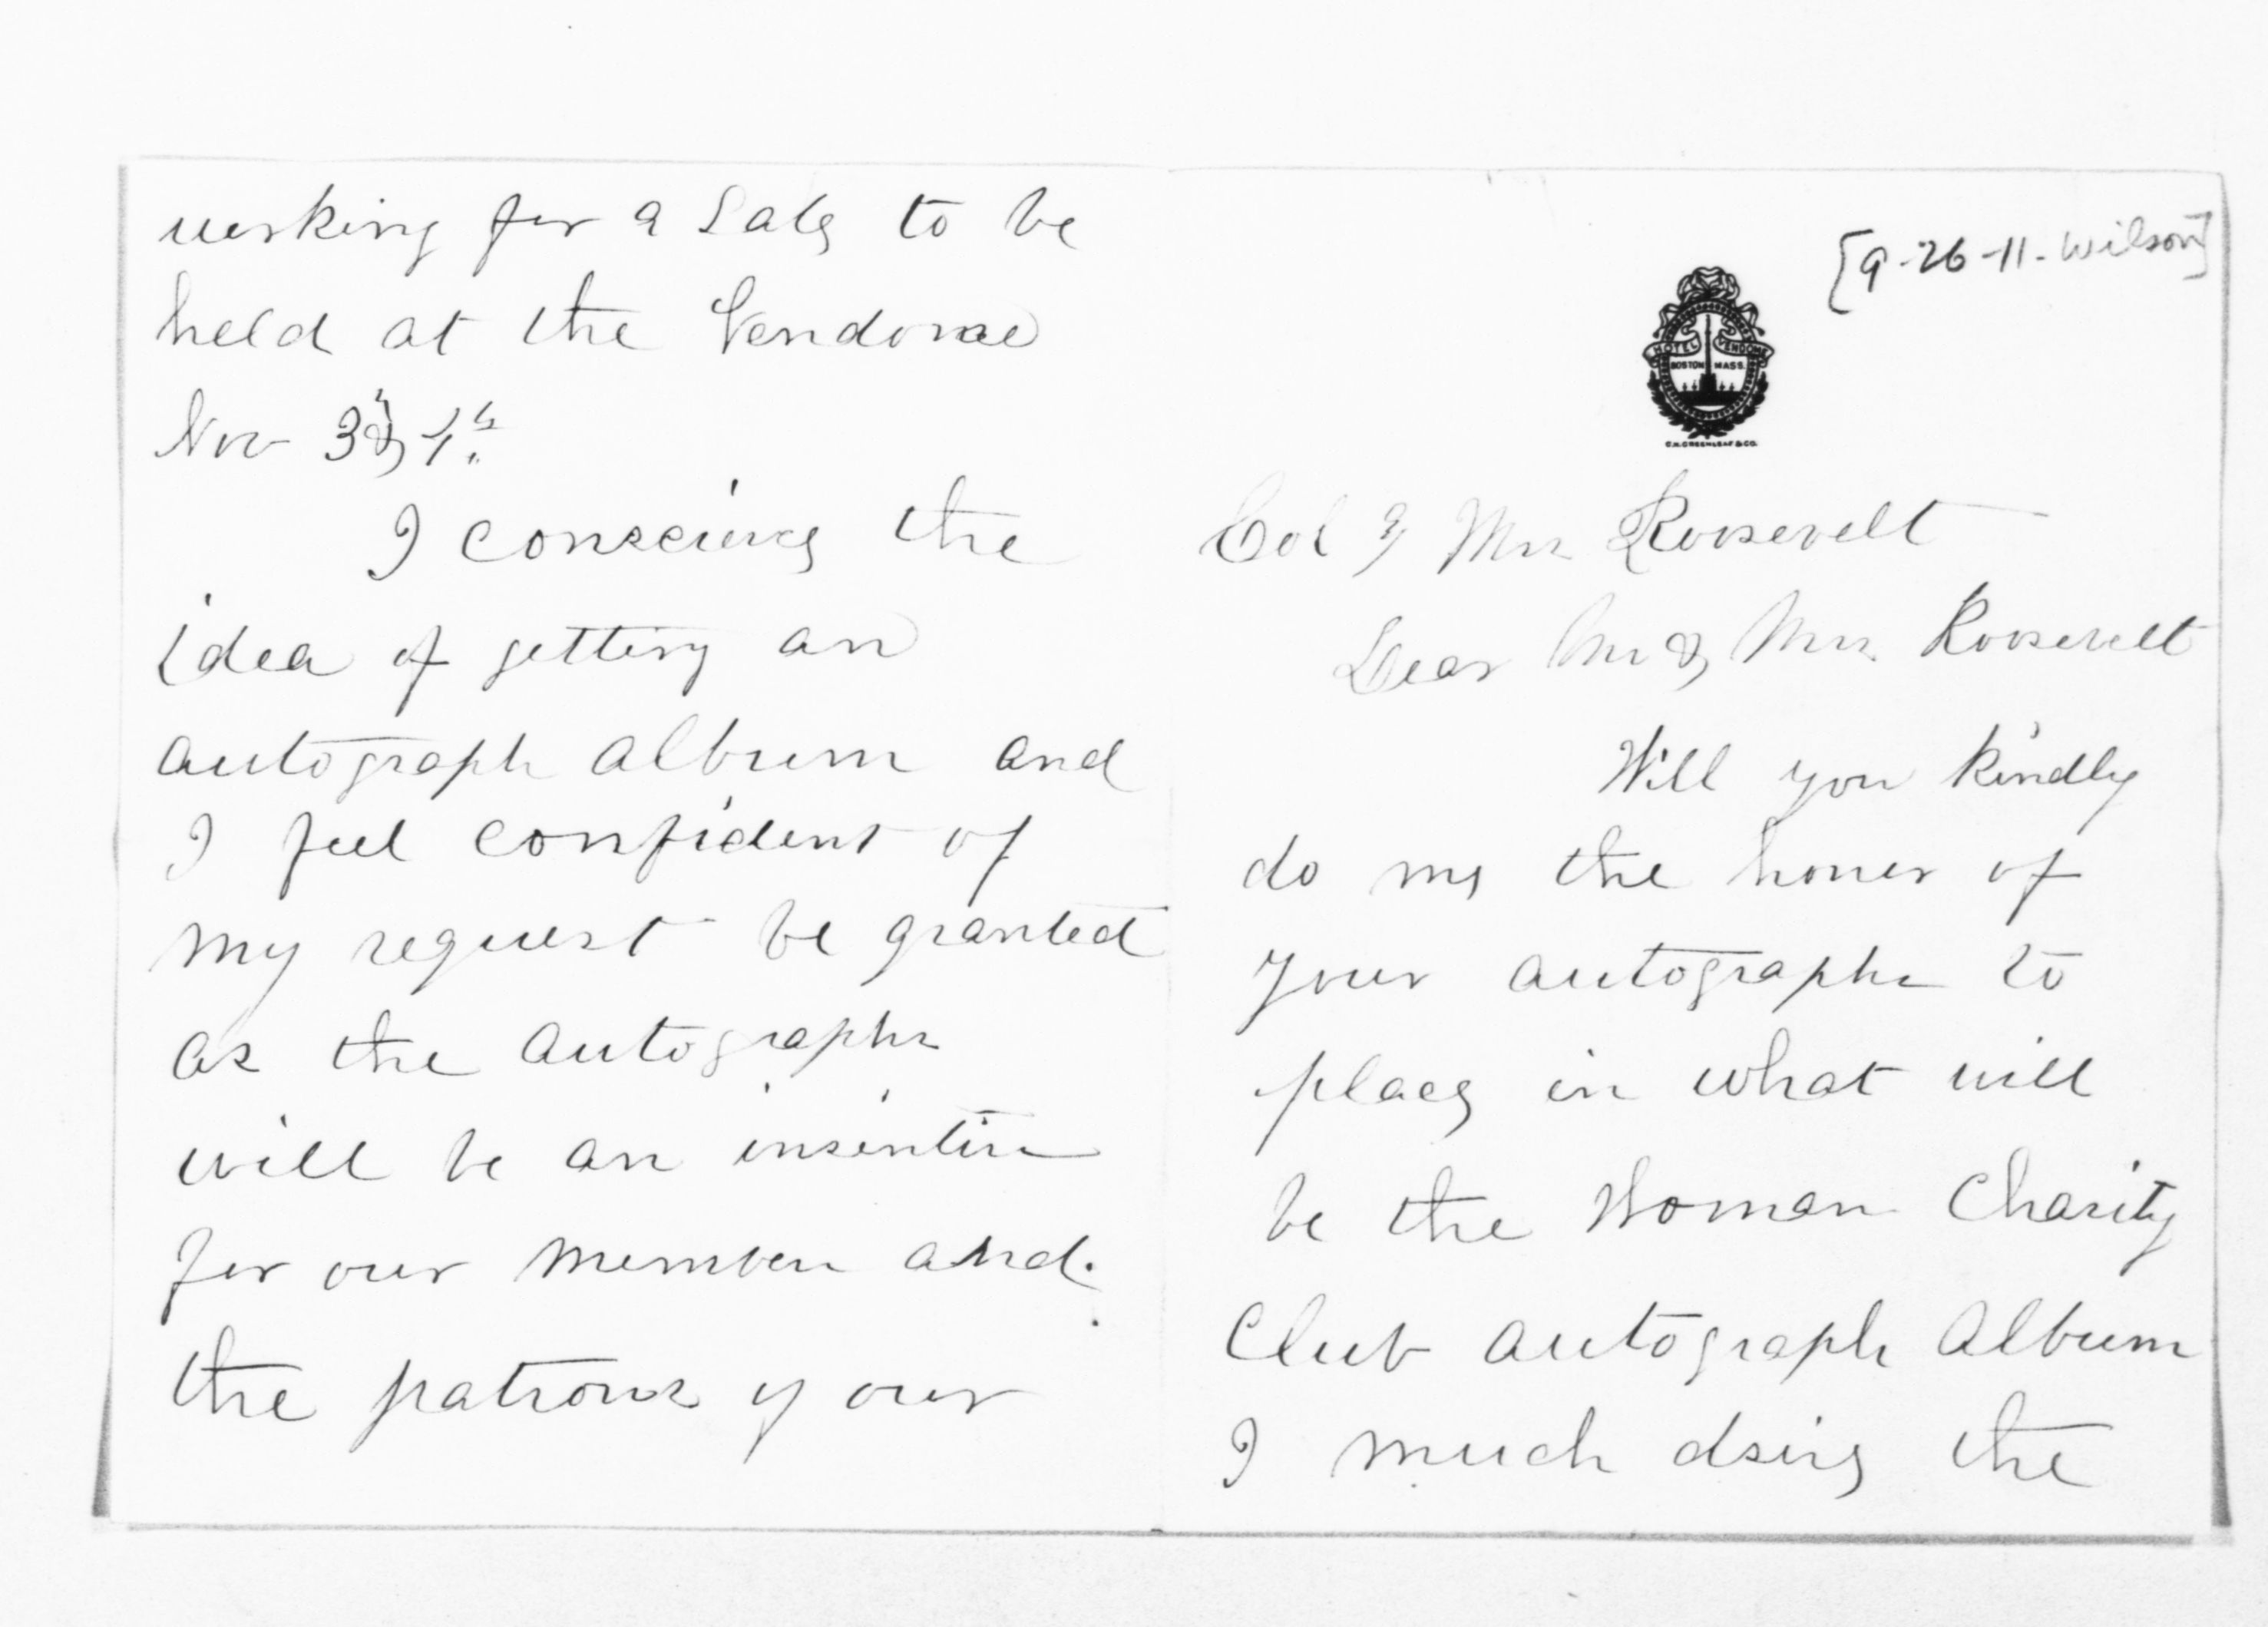 [9-26-11-Wilson]
HOTEL VENDOME
BOSTON MASS.
C.H. GREENLEAF & CO.
Col & Mrs Roosevelt
Dear Mr & Mrs Roosevelt
Will you kindly
do me the honor of
your autographs to
place in what will
be the Woman Charity
Club autograph album
I much dsire the
working for a Sale to be
held at the Vendome
Nov 3d & 4th
I conscieve the
idea of getting an
autograph album and
I feel confident of
my request be granted
as the autographs
will be an insentive
for our members and
the patrons of our